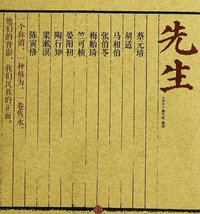 先生
《先生》编写组 编著
蔡元培
胡适
马相伯
张伯苓
梅贻琦
竺可桢
晏阳初
陶行知
梁漱溟
陈寅恪
一个称谓，一种修为，一卷隽永。
他们的背影，我们民族的正面。